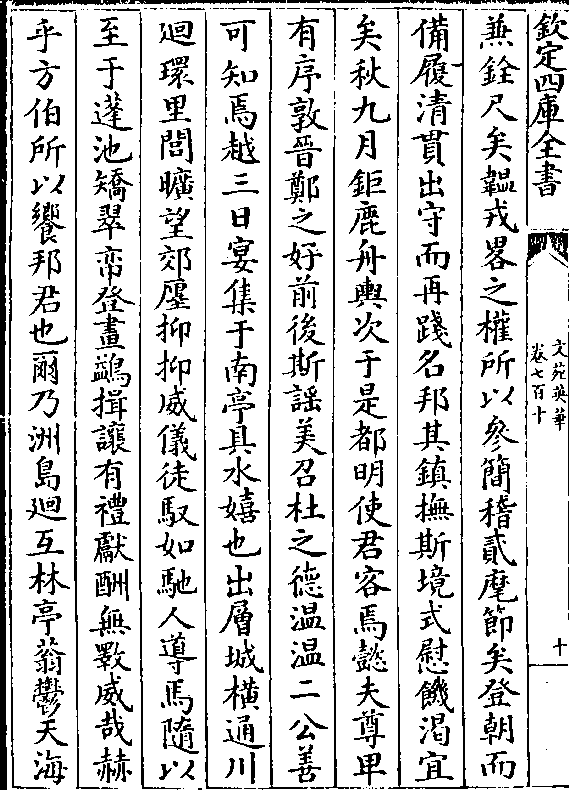 欽定四庫全書
文苑英華
卷七百十
十
兼銓尺矣韞戎畧之權所以參簡稽貳麾節矣登朝而
備履清貫出守而再踐名邦其鎮撫斯境式慰饑渴宜
矣秋九月鉅鹿舟輿次于是都明使君客焉懿夫尊甲
有序敦晉鄭之好前後斯謡美召杜之德温温二公善
可知焉越三日宴集于南亭具水嬉也出層城橫通川
廻環里閭曠望郊廛抑抑威儀徒馭如馳人導馬隨以
至于蓬池矯翠帟登畫鷁揖讓有禮獻酬無斁威哉赫
乎方伯所以饗邦君也爾乃洲島廻互林亭蓊鬱天海